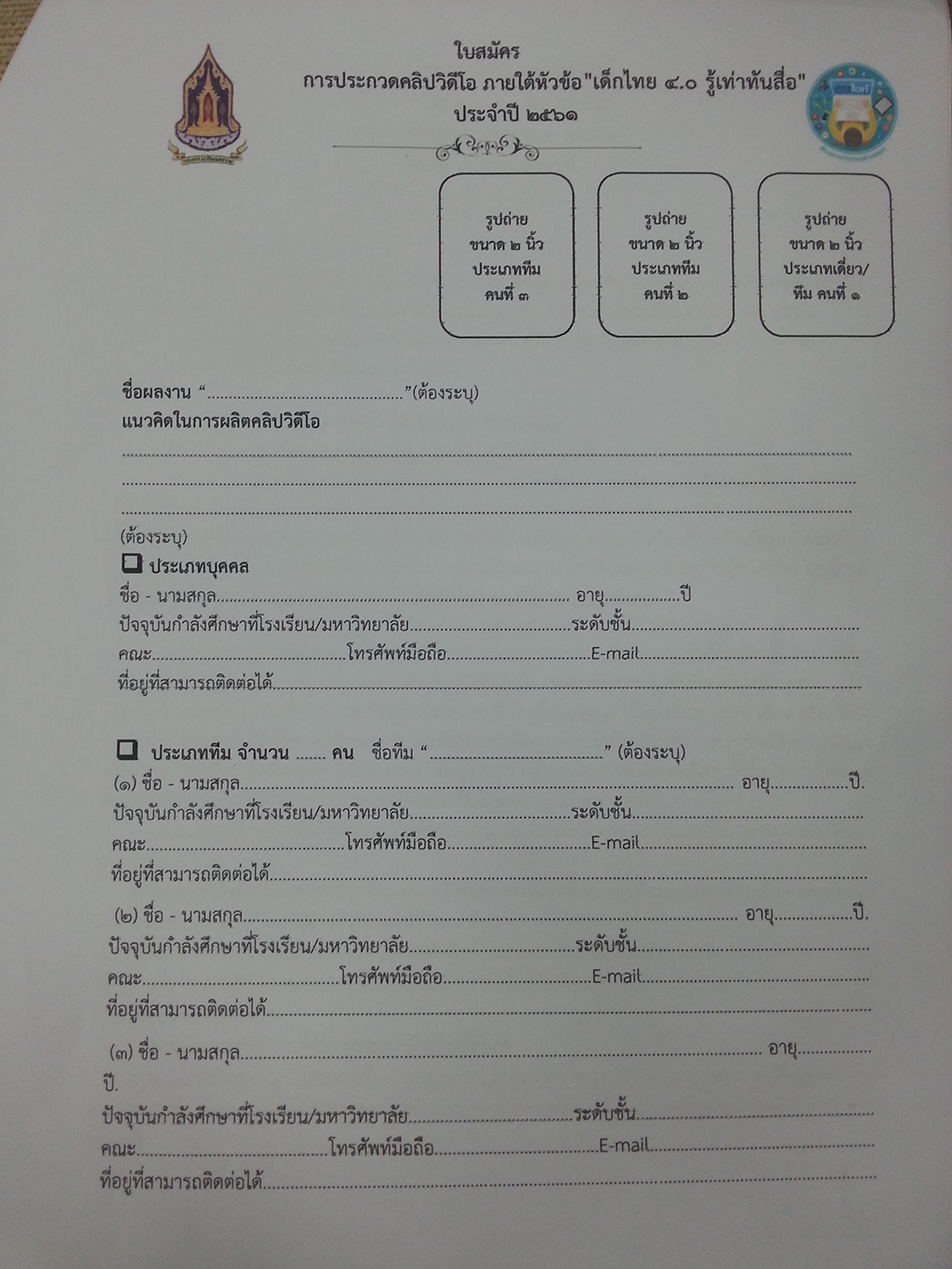 ใบสมัคร
การประกวดคลิปวิดีโอ ภายใต้หัวข้อ"เด็กไทย ๔.๐ รู้เท่าทันสื่อ"
ประจำปี ๒๕๖๑
รูปถ่าย
ขนาด ๒ นิ้ว
ประเภททีม
คนที่ ๓
รูปถ่าย
ขนาด ๒ นิ้ว
ประเภททีม
คนที่ ๒
รูปถ่าย
ขนาด ๒ นิ้ว
ประเภทเดี่ยว/
ทีม คนที่ ๑
ชื่อผลงาน “............................................”(ต้องระบุ)
แนวคิดในการผลิตคลิปวิดีโอ
(ต้องระบุ)
ประเภทบุคคล
ชื่อ - นามสกุล.......................................................... อายุ..................ปี
ปัจจุบันกำลังศึกษาที่โรงเรียน/มหาวิทยาลัย....................................ระดับชั้น....................................
คณะ............................................โทรศัพท์มือถือ.................................E-mail....................................
ที่อยู่ที่สามารถติดต่อได้....................................................................................
ประเภททีม จำนวน ....... คน ชื่อทีม “.......................................” (ต้องระบุ)
(๑) ชื่อ - นามสกุล.......................................................... อายุ..................ปี.
ปัจจุบันกำลังศึกษาที่โรงเรียน/มหาวิทยาลัย....................................ระดับชั้น....................................
คณะ............................................โทรศัพท์มือถือ.................................E-mail....................................
ที่อยู่ที่สามารถติดต่อได้....................................................................................
(๒) ชื่อ - นามสกุล.......................................................... อายุ..................ปี.
ปัจจุบันกำลังศึกษาที่โรงเรียน/มหาวิทยาลัย....................................ระดับชั้น....................................
คณะ............................................โทรศัพท์มือถือ.................................E-mail....................................
ที่อยู่ที่สามารถติดต่อได้....................................................................................
(๓) ชื่อ - นามสกุล.......................................................... อายุ..................
ปี.
ปัจจุบันกำลังศึกษาที่โรงเรียน/มหาวิทยาลัย....................................ระดับชั้น....................................
คณะ............................................โทรศัพท์มือถือ.................................E-mail....................................
ที่อยู่ที่สามารถติดต่อได้....................................................................................